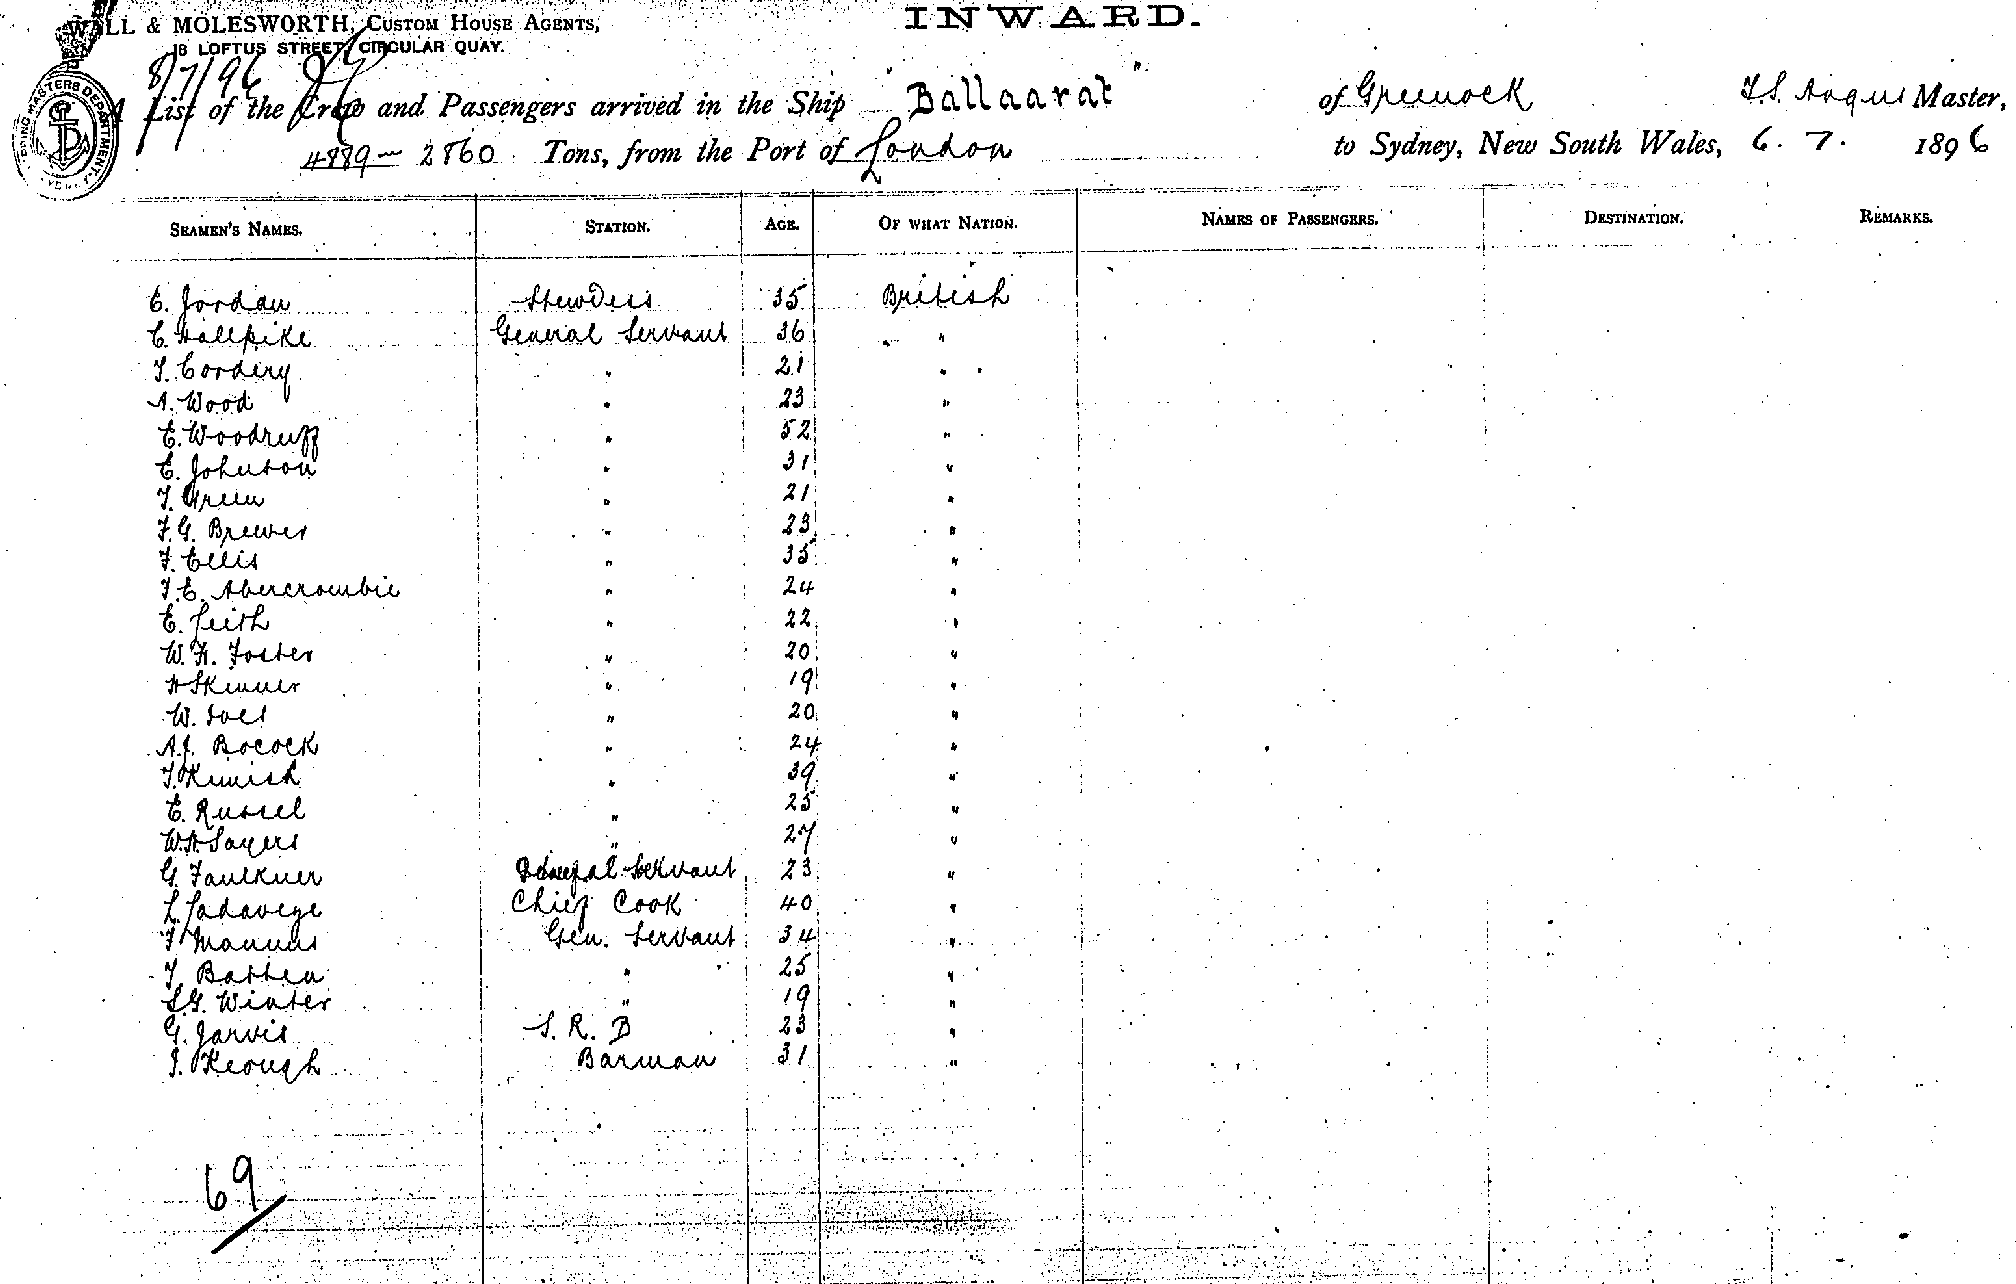 WALL & MOLESWORTH, CUSTOM HOUSE AGENTS,
18 LOFTUS STREET, CIRCULAR QUAY.
INWARD.
8/7/96
A List of the Crew and Passengers arrived in the Ship "Ballaarat" of Greenock F.S. Angus Master,
4889 - 2860 Tons, from the Port of London to Sydney, New South Wales, 6. 7. 1896
SEAMEN'S NAMES. STATION. AGE. OF WHAT NATION. NAMES OF PASSENGERS. DESTINATION. REMARKS.
E. Jordan Stewdess 35 British
C. Hallpike General Servant 36 "
T. Cordery " 21 "
A. Wood " 23 "
E. Woodruff " 52 "
E. Johnson " 31 "
T. Green " 21 "
F. G. Brewer " 23 "
F. Ellis " 35 "
T. E. Abercrombie " 24 "
E. Leith " 22 "
W. H. Foster " 20 "
H Skinner " 19 "
W. " 20 "
A. J. Bocock " 24 "
T. Kinnish " 39 "
E. Russel " 25 "
W. H. Sayers " 27 "
G. Faulkner General Servant 23 "
L. Ladavege Chief Cook 40 "
F Manning Gen. Servant 34 "
T Batten " 25 "
S. G. Winter " 19 "
G. Jarvis S. R. B 23 "
J. Keough Barman 31 "
69